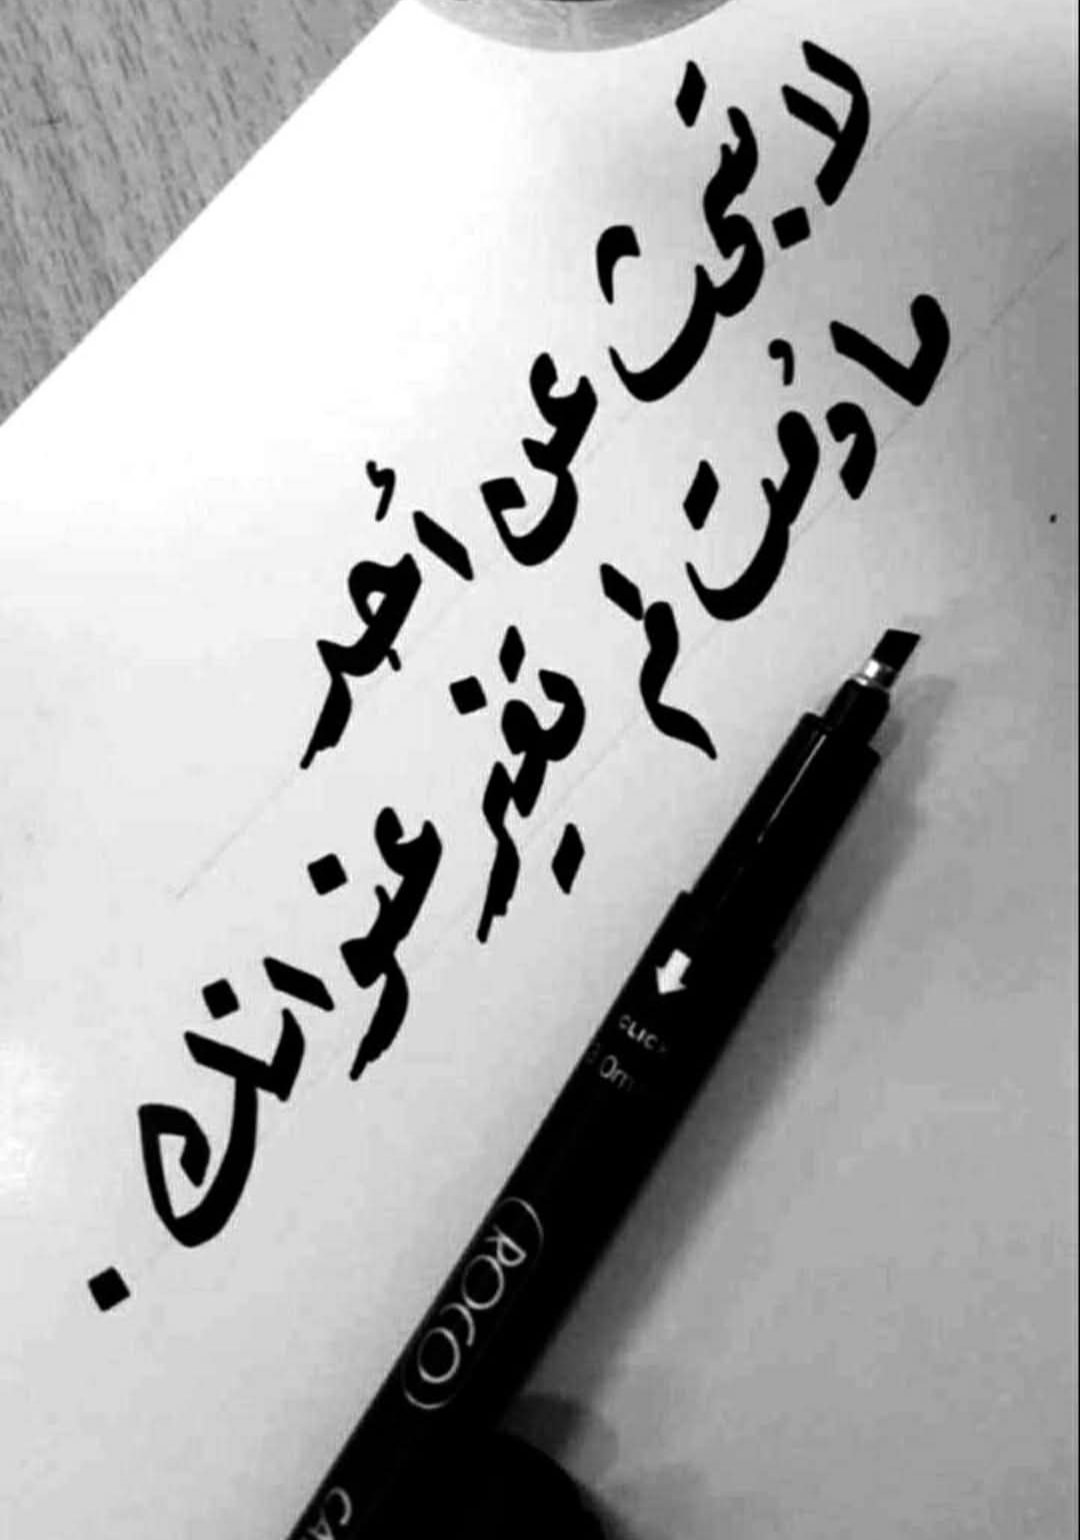 لا تبحث عن أحد
ما دُمت لم تغير عنوانك .
CLICK
3.0m
ROCO
CA